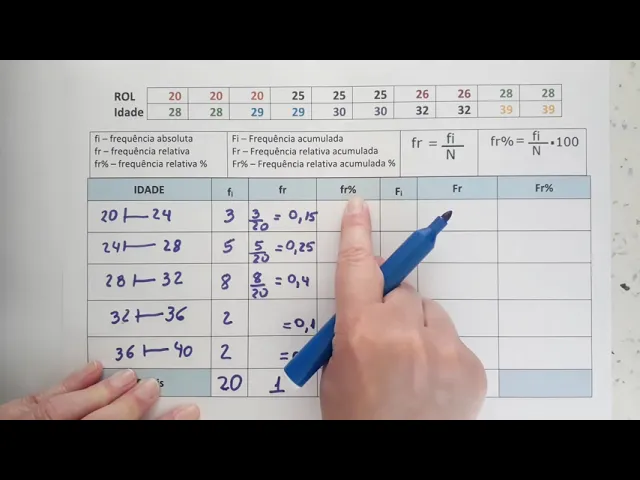 ROL 20 20 20 25 25 25 26 26 28 28
Idade 28 28 29 29 30 30 32 32 39 39
fi – frequência absoluta
fr – frequência relativa
fr% – frequência relativa %
Fi – Frequência acumulada
Fr – Frequência relativa acumulada
Fr% – Frequência relativa acumulada %
fr = fi/N
fr% = fi/N • 100
IDADE fi fr fr% Fi Fr Fr%
20 ⊢ 24 3 3/20 = 0,15
24 ⊢ 28 5 5/20 = 0,25
28 ⊢ 32 8 8/20 = 0,4
32 ⊢ 36 2 = 0,1
36 ⊢ 40 2 =
20 1